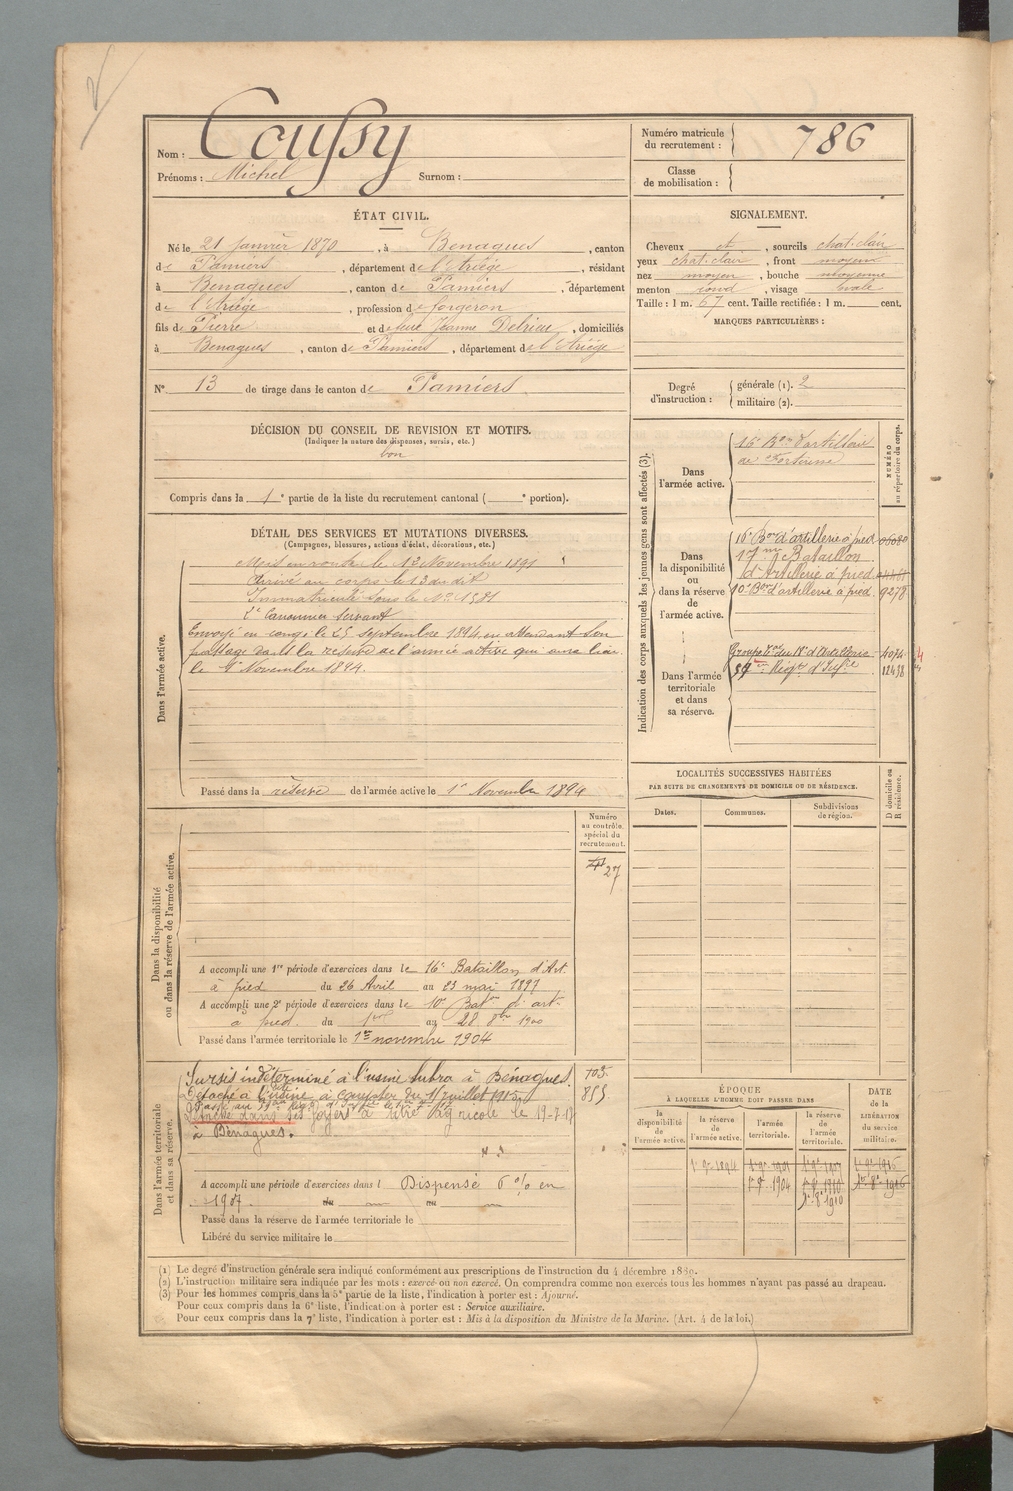 Nom : Coussy
Prénoms : Michel Surnom :
Numéro matricule du recrutement : 786
Classe de mobilisation :
ÉTAT CIVIL.
Né le 21 Janvier 1870, à Benagues, canton
de Pamiers, département de l'Ariège, résidant
à Benagues, canton de Pamiers, département
de l'Ariège, profession de forgeron
fils de Pierre et de Jeanne Delrieu, domiciliés
à Benagues, canton de Pamiers, département de l'Ariège
N° 13 de tirage dans le canton de Pamiers
SIGNALEMENT.
Cheveux et, sourcils chat. clair
yeux chat. clair, front moyen
nez moyen, bouche moyenne
menton rond, visage ovale
Taille : 1 m. 67 cent. Taille rectifiée : 1 m. cent.
MARQUES PARTICULIÈRES :
Degré d'instruction : générale (1). 2
militaire (2).
DÉCISION DU CONSEIL DE REVISION ET MOTIFS.
(Indiquer la nature des dispenses, sursis, etc.)
bon
Compris dans la 1e partie de la liste du recrutement cantonal ( e portion).
DÉTAIL DES SERVICES ET MUTATIONS DIVERSES.
(Campagnes, blessures, actions d'éclat, décorations, etc.)
Dans l'armée active.
Mis en route le 12 Novembre 1891
Arrivé au corps le 13 du dit
Immatriculé sous le No 1581
2e Canonnier servant
Envoyé en congé le 25 septembre 1894 en attendant son
passage dans la réserve de l'armée active qui aura lieu
le 1er Novembre 1894.
Passé dans la réserve de l'armée active le 1er Novembre 1894
Indication des corps auxquels les jeunes gens sont affectés (3).
NUMÉRO au répertoire du corps.
Dans l'armée active.
16e Bon d'artillerie
de forteresse
Dans la disponibilité ou dans la réserve de l'armée active.
16e Bon d'artillerie à pied
17me Bataillon
d'Artillerie à pied.
10e Bon d'artillerie à pied. 9278
Dans l'armée territoriale et dans sa réserve.
Groupe Tal du 18e d'Artillerie 4074
Régt d'Infie 12438
LOCALITÉS SUCCESSIVES HABITÉES
PAR SUITE DE CHANGEMENTS DE DOMICILE OU DE RÉSIDENCE.
D domicile ou R résidence.
Dates. Communes. Subdivisions de région.
Dans la disponibilité ou dans la réserve de l'armée active.
Numéro au contrôle spécial du recrutement.
27
A accompli une 1re période d'exercices dans le 16e Bataillon d'Art.
à pied du 26 Avril au 23 mai 1897
A accompli une 2e période d'exercices dans le 10e Baton d'art.
à pied. du 1er au 28 8bre 1900
Passé dans l'armée territoriale le 1er novembre 1904
Dans l'armée territoriale et dans sa réserve.
Sursis indéterminé à l'usine Subra à Bénagues. 703
Détaché à l'usine à compter du 11 juillet 1915 855
dans ses foyers à titre Agricole le 19-7-17
à Bénagues.
A accompli une période d'exercices dans l Dispensé 6 % en
1907. du au
Passé dans la réserve de l'armée territoriale le
Libéré du service militaire le
ÉPOQUE
À LAQUELLE L'HOMME DOIT PASSER DANS
la disponibilité de l'armée active. la réserve de l'armée active. l'armée territoriale. la réserve de l'armée territoriale.
DATE de la LIBÉRATION du service militaire.
(1) Le degré d'instruction générale sera indiqué conformément aux prescriptions de l'instruction du 4 décembre 1889.
(2) L'instruction militaire sera indiquée par les mots : exercé ou non exercé. On comprendra comme non exercés tous les hommes n'ayant pas passé au drapeau.
(3) Pour les hommes compris dans la 5e partie de la liste, l'indication à porter est : Ajourné.
Pour ceux compris dans la 6e liste, l'indication à porter est : Service auxiliaire.
Pour ceux compris dans la 7e liste, l'indication à porter est : Mis à la disposition du Ministre de la Marine. (Art. 4 de la loi.)